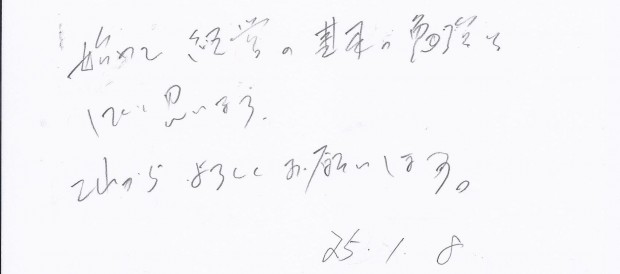 始めて 経営の基本の勉強を
したいと思います。
これから よろしくお願いします。
25.1.8